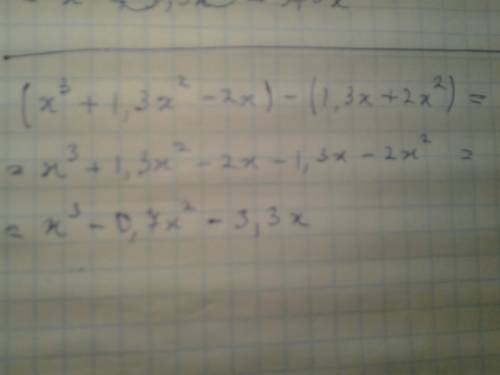 (x³ + 1,3x² - 2x) - (1,3x + 2x²) =
= x³ + 1,3x² - 2x - 1,3x - 2x² =
= x³ - 0,7x² - 3,3x